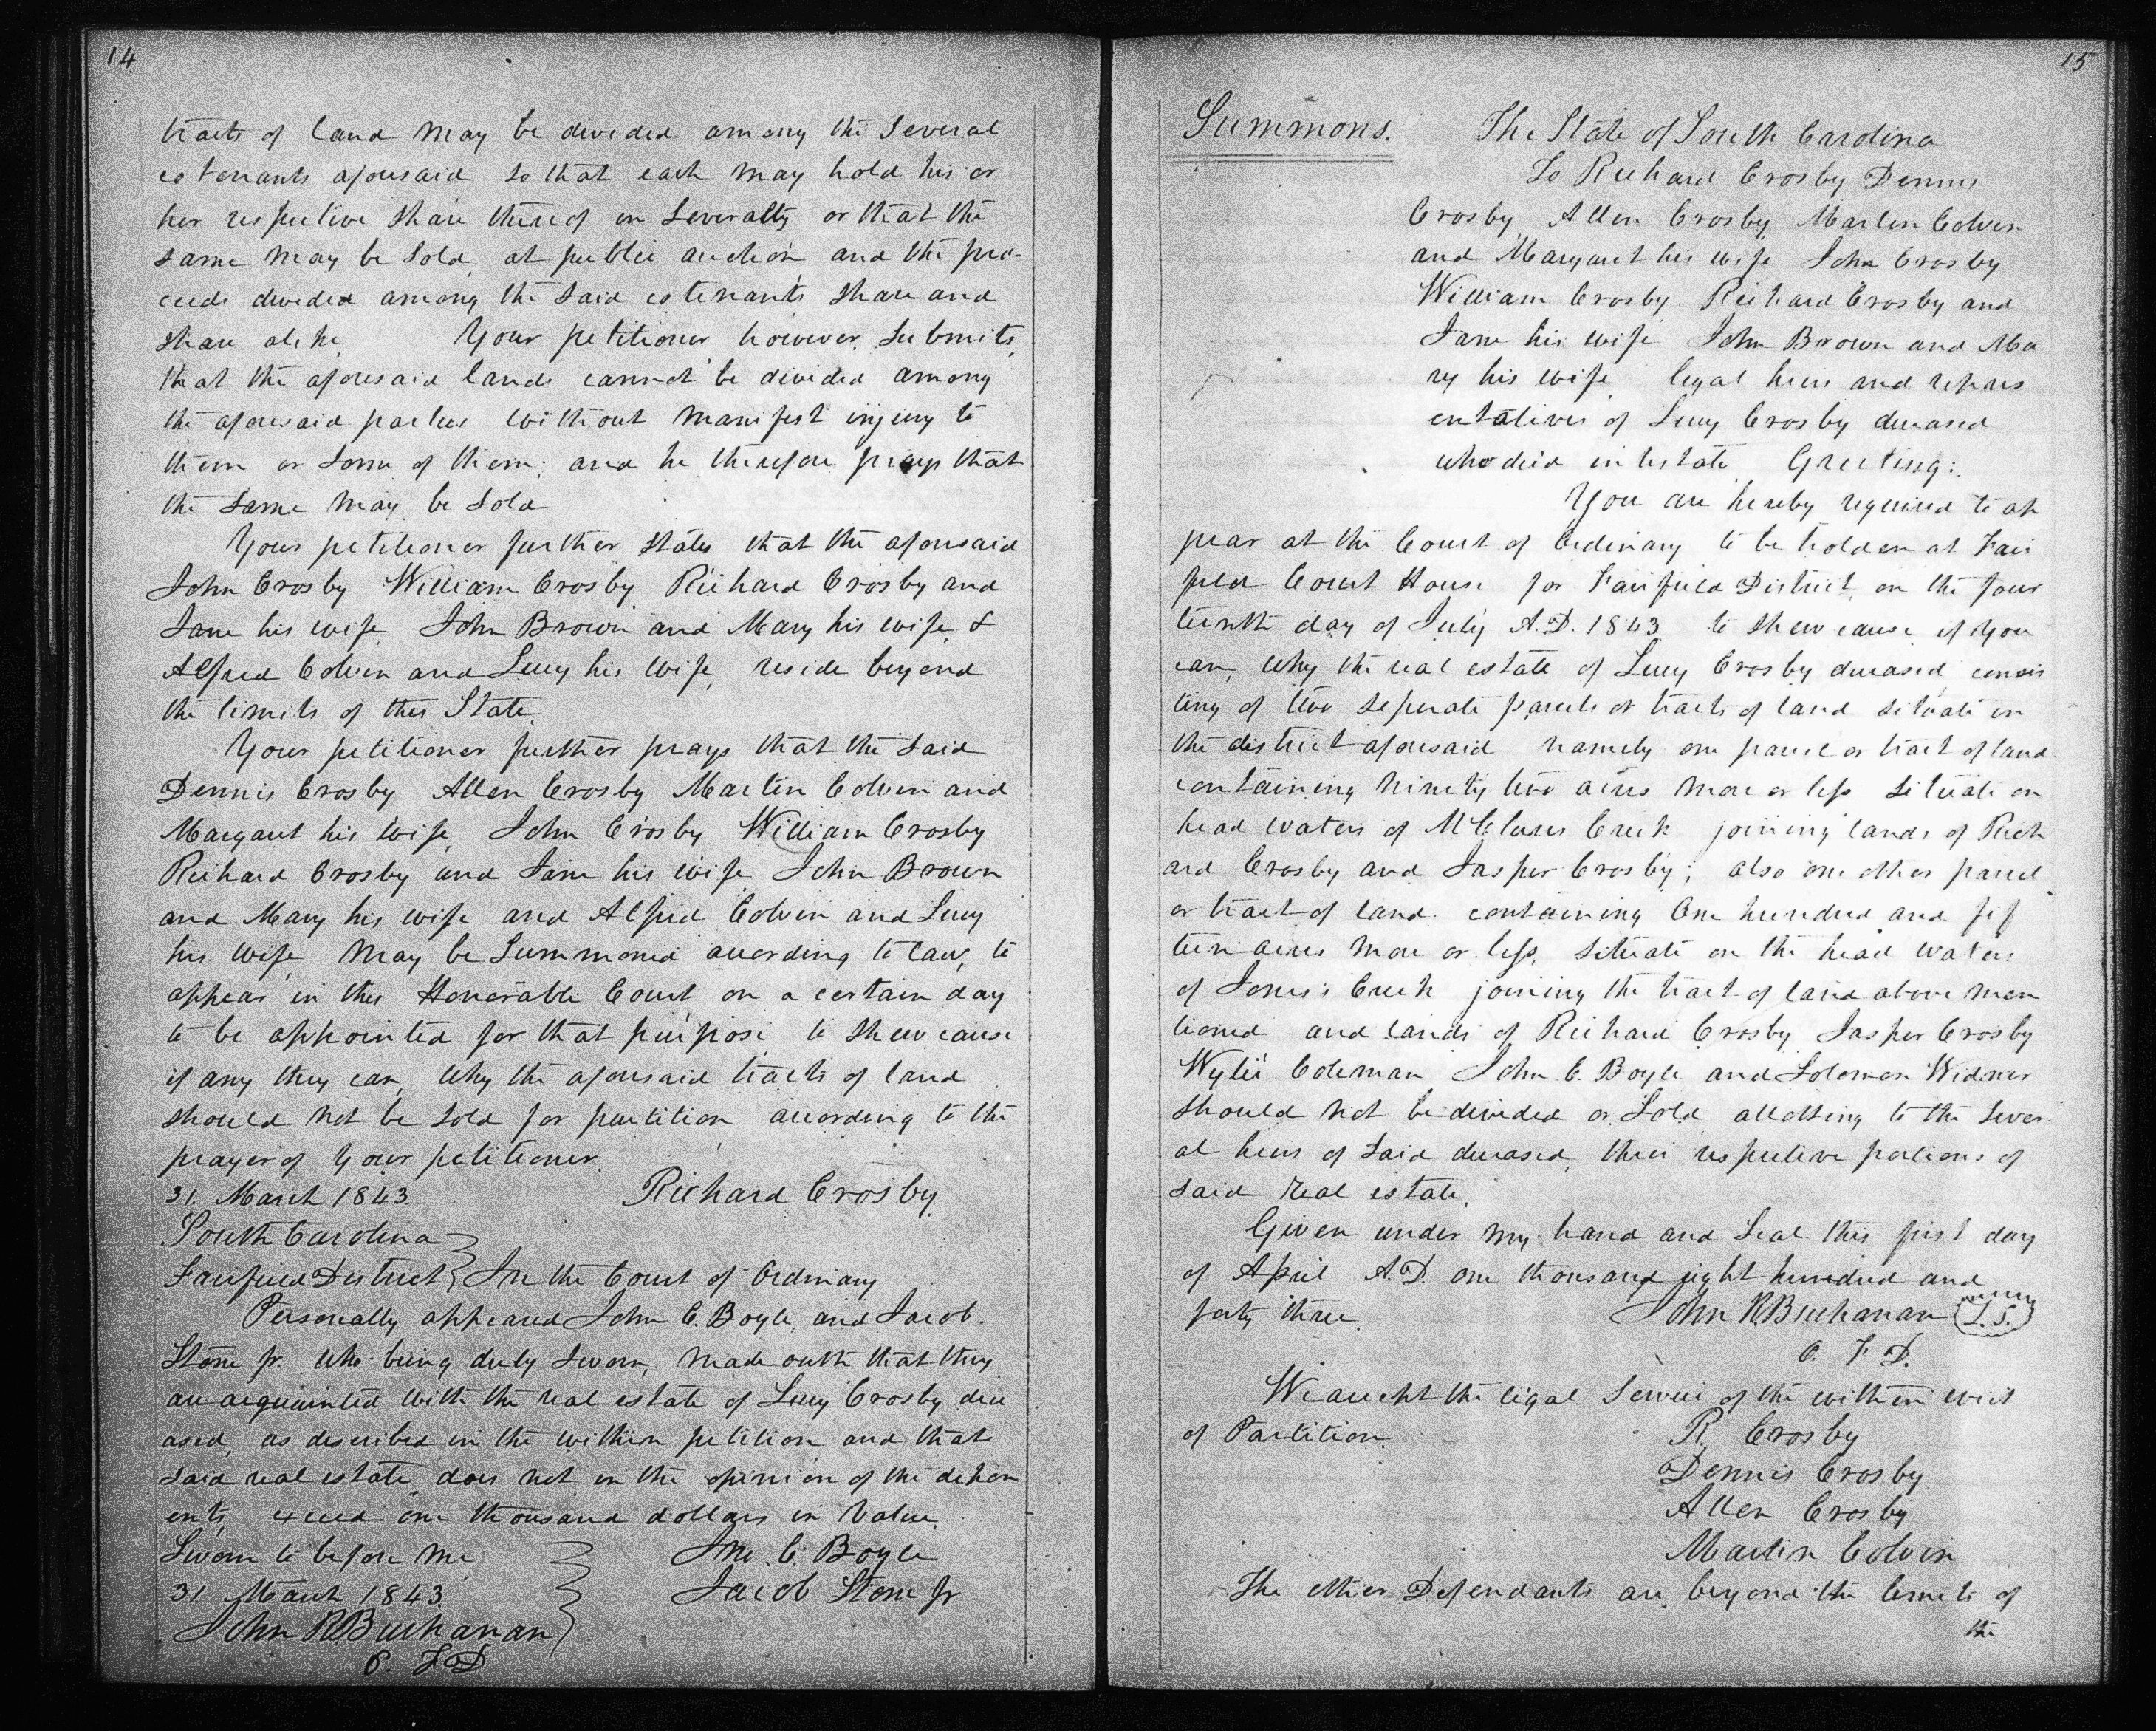 14
tracts of land may be divided among the several
co tenants aforesaid so that each may hold his or
her respective share thereof in severalty or that the
same may be sold at public auction and the pro-
ceeds divided among the said co tenants share and
share alike Your petitioner however submits
that the aforesaid lands cannot be divided among
the aforesaid parties without manifest injury to
them or some of them; and he therefore prays that
the same may be sold
Your petitioner further states that the aforesaid
John Crosby William Crosby Richard Crosby and
Jane his wife John Brown and Mary his wife &
Alfred Colvin and Lucy his wife, reside beyond
the limits of this State.
Your petitioner further prays that the said
Dennis Crosby Allen Crosby Martin Colvin and
Margaret his wife, John Crosby William Crosby
Richard Crosby and Jane his wife John Brown
and Mary his wife and Alfred Colvin and Lucy
his wife may be summoned according to law, to
appear in this Honorable Court on a certain day
to be appointed for that purpose to shew cause
if any they can, why the aforesaid tracts of land
should not be sold for partition according to the
prayer of your petitioner.
31. March 1843. Richard Crosby
South Carolina
Fairfield District } In the Court of Ordinary
Personally appeared John C. Boyle, and Jacob
Stone Jr. who being duly sworn, made outh that they
are acquainted with the real estate of Lucy Crosby dece
ased, as described in the within petition and that
said real estate does not in the opinion of the depon
ents, exceed one thousand dollars in value.
Sworn to before me Jno. C. Boyle
31 March 1843. Jacob Stone Jr
John R. Buchanan
O. F D
15
Summons. The State of South Carolina
To Richard Crosby Dennis
Crosby, Allen Crosby Martin Colvin
and Margaret his wife John Crosby
William Crosby Richard Crosby and
Jane his wife John Brown and Ma
ry his wife legal heirs and repres
entatives of Lucy Crosby deceased
who died intestate Greeting:
You are hereby required to ap
pear at the Court of Ordinary to be holden at Fair
field Court House for Fairfield District, on the four
teenth day of July A.D. 1843 to shew cause if you
can, why the real estate of Lucy Crosby deceased consis
ting of two seperate parcels or tracts of land situate in
the district aforesaid namely one parcel or tract of land
containing ninety two acres more or less situate on
head waters of McClures Creek joining lands of Rich
ard Crosby and Jasper Crosby; also one other parcel
or tract of land containing One hundred and fif
teen acres more or less, situate on the head waters
of Jones's Creek joining the tract of land above men
tioned and lands of Richard Crosby Jasper Crosby
Wylie Coleman John C. Boyle and Solomon Widner
should not be divided or sold allotting to the sever
al heirs of said deceased, their respective portions of
said real estate.
Given under my hand and seal this first day
of April A.D. one thousand eight hundred and
forty three. John R Buchanan L.S.
O. F D.
We accept the legal service of the within writ
of Partition. R. Crosby
Dennis Crosby
Allen Crosby
Martin Colvin
The other Defendants are beyond the limits of
the